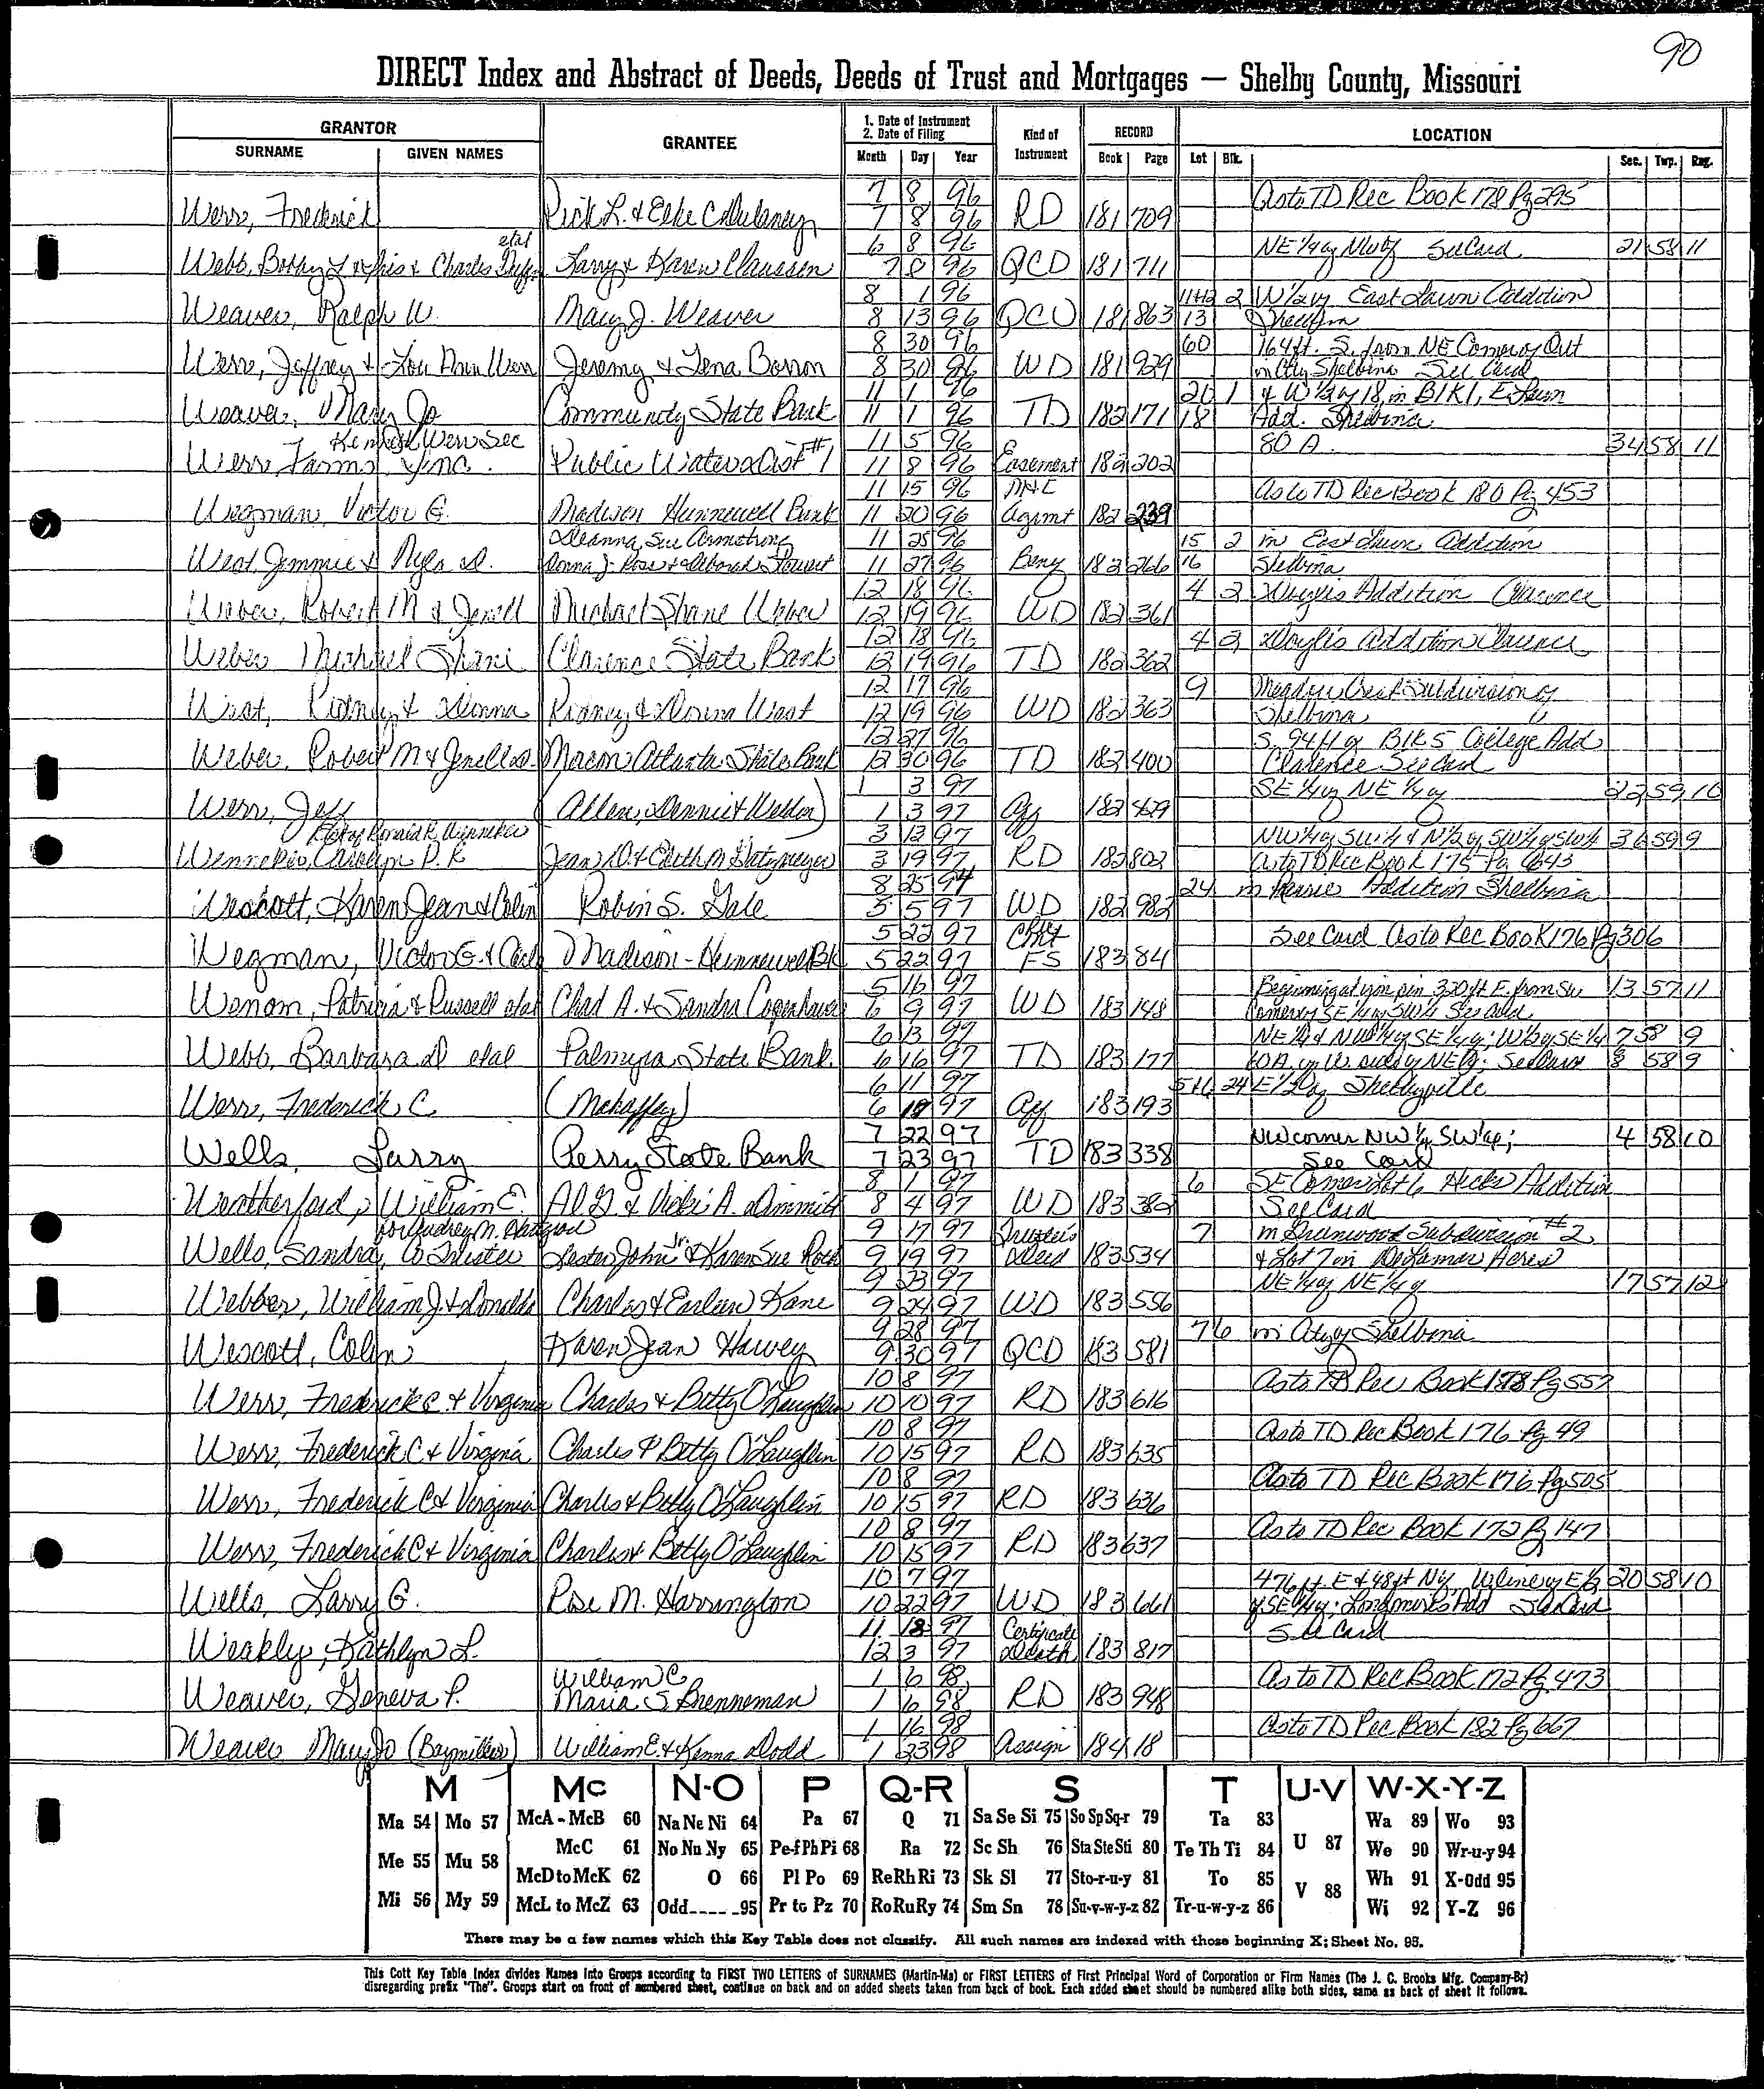 90
DIRECT Index and Abstract of Deeds, Deeds of Trust and Mortgages — Shelby County, Missouri
GRANTOR GRANTEE 1. Date of Instrument 2. Date of Filing Kind of Instrument RECORD LOCATION
SURNAME GIVEN NAMES Month Day Year Book Page Lot Blk. Sec. Twp. Rag.
7 8 96 As to TD Rec Book 178 Pg 295
Werr, Frederick Rick L. & Elke C. Dulaney 7 8 96 RD 181 709
etal 6 8 96 NE 1/4 of See Card 21 58 11
Webb, Bobby & Charles Larry & Karen Claussen 7 8 96 QCD 181 711
8 1 96 11+12 2 W 1/2 of East Lawn Addition
Weaver, Ralph W. Mary J. Weaver 8 13 96 QCD 181 863 13 Shelbina
8 30 96 60 164 ft. S. from NE Corner of Out
Werr, Jeffrey & Lou Ann Werr Jeremy & Lena Borron 8 30 96 WD 181 929 in City Shelbina See Card
11 1 96 20 1 & W 1/2 of 18, in Blk 1, E. Lawn
Weaver, Mary Jo Community State Bank 11 1 96 TD 182 171 18 Add. Shelbina
Werr Sec 11 5 96 80 A. 34 58 11
Werr Farms Inc. Public Water Dist #1 11 8 96 Easement 182 202
11 15 96 As to TD Rec Book 180 Pg 453
Wegman, Victor G. Madison Hunnewell Bank 11 20 96 Agrmt 182 239
Deanna Sue Armstrong 11 25 96 15 2 in East Lawn Addition
West, Jimmie & Nyla D. Donna J. Rose & Deborah Stewart 11 27 96 Beny 182 266 16 Shelbina
12 18 96 4 2 Doyles Addition Clarence
Weber, Robert M & Jenell Michael Shane Weber 12 19 96 WD 182 361
12 18 96 4 2 Doyles Addition Clarence
Weber Michael Shane Clarence State Bank 12 19 96 TD 182 362
12 17 96 9 Meadow Crest Subdivision of
West, Rodney & Donna Rodney & Donna West 12 19 96 WD 182 363 Shelbina
12 27 96 S. 94 ft of Blk 5 College Add
Weber, Robert M & Jenell D. Macon Atlanta State Bank 12 30 96 TD 182 400 Clarence See Card
1 3 97 SE 1/4 of NE 1/4 of 22 59 10
Werr, Jeff (Allen, Dennis & Weldon) 1 3 97 Aff 182 429
Ronald R. Winneker 3 12 97 NW 1/4 of SW 1/4 & N 1/2 of SW 1/4 of SW 1/4 36 59 9
Carolyn P. R. Jean D. & Edith M. 3 19 97 RD 182 802 As to TD Rec Book 175 Pg 643
8 25 94 24 in Addition Shelbina
Wescott, Karen Jean & Colin Robin S. Gale 5 5 97 WD 182 982
5 22 97 Cont See Card As to Rec Book 176 Pg 306
Wegman, Victor G. & Madison-Hunnewell Bk 5 22 97 FS 183 84
5 16 97 Beginning at iron pin 320 ft E. from SW 13 57 11
Wenom, Patricia & Russell etal Chad A. & Sandra Copenhaver 6 9 97 WD 183 148 Corner of SE 1/4 of SW 1/4 See Card
6 13 97 NE 1/4 & NW 1/4 of SE 1/4 of; W 1/2 of SE 1/4 7 58 9
Webb, Barbara D etal Palmyra State Bank 6 16 97 TD 183 177 60 A. of W. side of NE 1/4; See Card 8 58 9
6 11 97 5+6 24 E 1/2 of Shelbyville
Werr, Frederick, C. (Mehaffey) 6 18 97 Aff 183 193
7 22 97 NW corner NW 1/4 SW 1/4; 4 58 10
Wells, Larry Perry State Bank 7 23 97 TD 183 338 See Card
8 1 97 6 SE Corner Lot 6 Hicks Addition
Weatherford, William E. Al G. & Vicki A. Dimmitt 8 4 97 WD 183 382 See Card
for Audrey M. 9 17 97 Trustee's 7 in Drunwood Subdivision #2
Wells, Sandra, Co Trustee Lester John Jr. & Karen Sue Roth 9 19 97 Deed 183 534 & Lot 7 in DeLamar Acres
9 23 97 NE 1/4 of NE 1/4 of 17 57 12
Webber, William J. & Donalda Charles & Earleen Kane 9 24 97 WD 183 556
9 28 97 76 in City of Shelbina
Wescott, Colin Karen Jean Harvey 9 30 97 QCD 183 581
10 8 97 As to TD Rec Book 178 Pg 557
Werr, Frederick C & Virginia Charles & Betty O'Laughlin 10 10 97 RD 183 616
10 8 97 As to TD Rec Book 176 Pg 49
Werr, Frederick C & Virginia Charles & Betty O'Laughlin 10 15 97 RD 183 635
10 8 97 As to TD Rec Book 176 Pg 505
Werr, Frederick C & Virginia Charles & Betty O'Laughlin 10 15 97 RD 183 636
10 8 97 As to TD Rec Book 172 Pg 147
Werr, Frederick C & Virginia Charles & Betty O'Laughlin 10 15 97 RD 183 637
10 7 97 476 ft. E & 48 ft N of W line of E 1/2 20 58 10
Wells, Larry G. Rose M. Harrington 10 22 97 WD 183 661 of SE 1/4 of; Longmires Add See Card
11 18 97 Certificate See Card
Weakly, Kathlyn L. 12 3 97 Death 183 817
William C. 1 6 98 As to TD Rec Book 172 Pg 473
Weaver, Geneva P. Maria S. Brenneman 1 6 98 RD 183 948
1 16 98 As to TD Rec Book 182 Pg 667
Weaver Mary Jo (Baymiller) William E. & Kenna Dodd 1 23 98 Assign 184 18
M Mc N-O P Q-R S T U-V W-X-Y-Z
Ma 54 Mo 57 McA - McB 60 Na Ne Ni 64 Pa 67 Q 71 Sa Se Si 75 So Sp Sq-r 79 Ta 83 U 87 Wa 89 Wo 93
Me 55 Mu 58 McC 61 No Nu Ny 65 Pe-f Ph Pi 68 Ra 72 Sc Sh 76 Sta Ste Sti 80 Te Th Ti 84 We 90 Wr-u-y 94
McD to McK 62 O 66 Pl Po 69 Re Rh Ri 73 Sk Sl 77 Sto-r-u-y 81 To 85 V 88 Wh 91 X-Odd 95
Mi 56 My 59 McL to McZ 63 Odd____95 Pr to Pz 70 Ro Ru Ry 74 Sm Sn 78 Su-v-w-y-z 82 Tr-u-w-y-z 86 Wi 92 Y-Z 96
There may be a few names which this Key Table does not classify. All such names are indexed with those beginning X; Sheet No. 95.
This Cott Key Table Index divides Names into Groups according to FIRST TWO LETTERS of SURNAMES (Martin-Ma) or FIRST LETTERS of First Principal Word of Corporation or Firm Names (The J. C. Brooks Mfg. Company-Br)
disregarding prefix "The". Groups start on front of numbered sheet, continue on back and on added sheets taken from back of book. Each added sheet should be numbered alike both sides, same as back of sheet it follows.